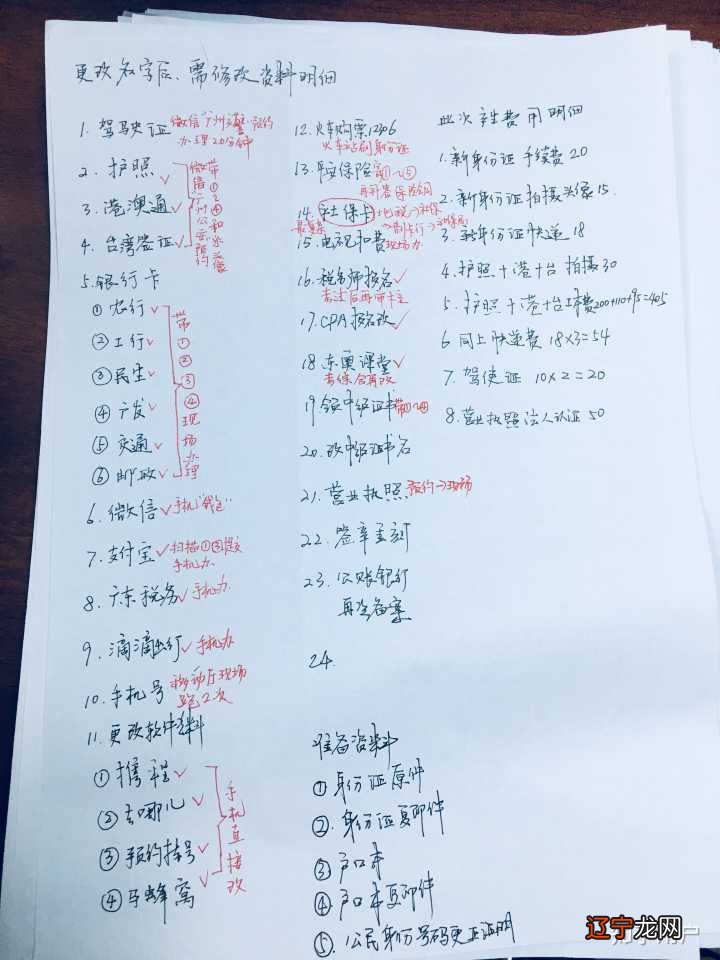 更改名字后、需修改资料明细
1. 驾驶证 微信"广州交警"预约
办理20分钟
2. 护照 ✓
3. 港澳通 ✓
4. 台湾签证 ✓
微信广州公安预约
带①②④和
5. 银行卡
① 农行 ✓
② 工行 ✓
③ 民生 ✓
④ 广发 ✓
⑤ 交通 ✓
⑥ 邮政 ✓
带①②③④现场办理
6. 微信 ✓ 手机"钱包"
7. 支付宝 ✓ 扫描①
手机办
8. 广东税务 ✓ 手机办
9. 滴滴出行 ✓ 手机办
10. 手机号 移动厅现场
跑2次
11. 更改软件资料
① 携程 ✓
② 去哪儿 ✓
③ 预约挂号 ✓
④ 马蜂窝 ✓
手机直接改
12. 火车购票12306
火车站刷身份证
13. 平安保险 带①~⑤
14. 社保卡
15. 电视扣费 现场办
16. 税务师报名 ✓
考过后再带卡
17. CPA报名改 ✓
18. 东奥课堂 ✓
考综合再改
19. 领中级证书 带①~④
20. 改中级证书名
21. 营业执照 预约→现场
22. 签章重刻
23. 公账银行
再次备案
24.
准备资料
① 身份证原件
②. 身份证复印件
③ 户口本
④ 户口本复印件
⑤. 公民身份号码更正证明
此次产生费用明细
1. 新身份证 手续费 20
2. 新身份证拍摄头像 15.
3. 新身份证快递 18
4. 护照+港+台 拍摄30
5. 护照+港+台工本费200+110+95=405
6 同上快递费 18×3=54
7. 驾使证 10×2=20
8. 营业执照法人认证 50
辽宁龙网